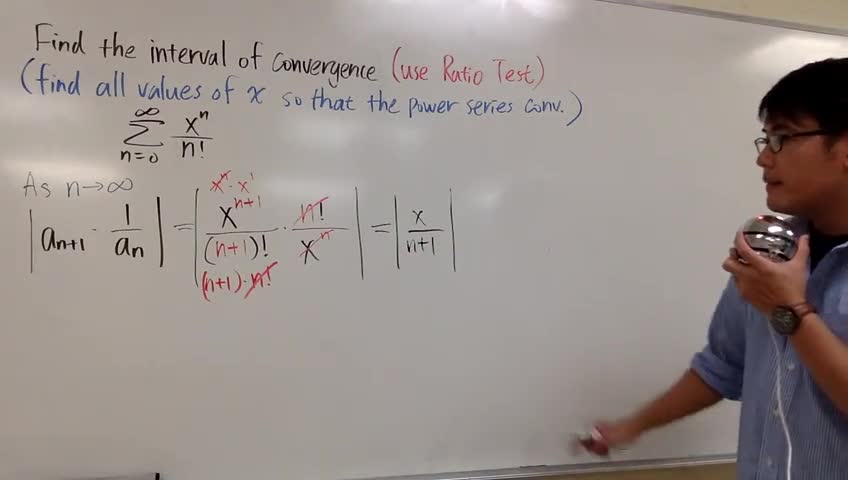 Find the interval of convergence (use Ratio Test)
(find all values of x so that the power series conv.)
∞
∑ xⁿ/n!
n=0
As n→∞
xⁿ · x¹
|aₙ₊₁ · 1/aₙ| = |xⁿ⁺¹/(n+1)! · n!/xⁿ| = |x/(n+1)|
(n+1)·n!